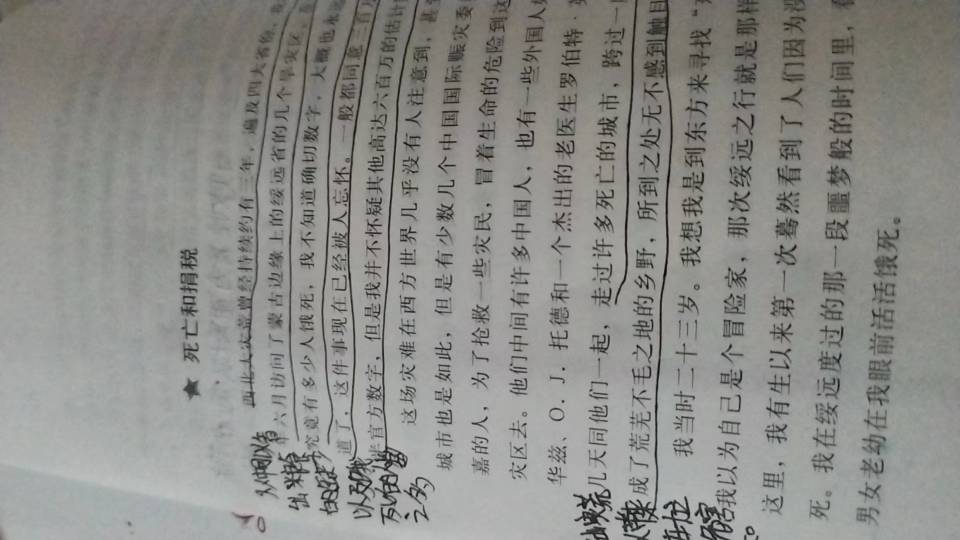 ★ 死亡和捐税
西北大灾荒曾经持续约有三年，遍及四大省份，
年六月访问了蒙古边缘上的绥远省的几个旱灾区，
究竟有多少人饿死，我不知道确切数字，大概也永远
道了，这件事现在已经被人忘怀。一般都同意三百
半官方数字，但是我并不怀疑其他高达六百万的估计
这场灾难在西方世界几乎没有人注意到，甚
城市也是如此，但是有少数几个中国国际赈灾委
嘉的人，为了抢救一些灾民，冒着生命的危险到这
灾区去。他们中间有许多中国人，也有一些外国人
华兹、O．J．托德和一个杰出的老医生罗伯特·
几天同他们一起，走过许多死亡的城市，跨过一
成了荒芜不毛之地的乡野，所到之处无不感到触目
我当时二十三岁。我想我是到东方来寻找“
我以为自己是个冒险家，那次绥远之行就是那样
这里，我有生以来第一次蓦然看到了人们因为没
死。我在绥远度过的那一段噩梦般的时间里，
男女老幼在我眼前活活饿死。
从中可以看
出
的
以及
多
之
危害
。